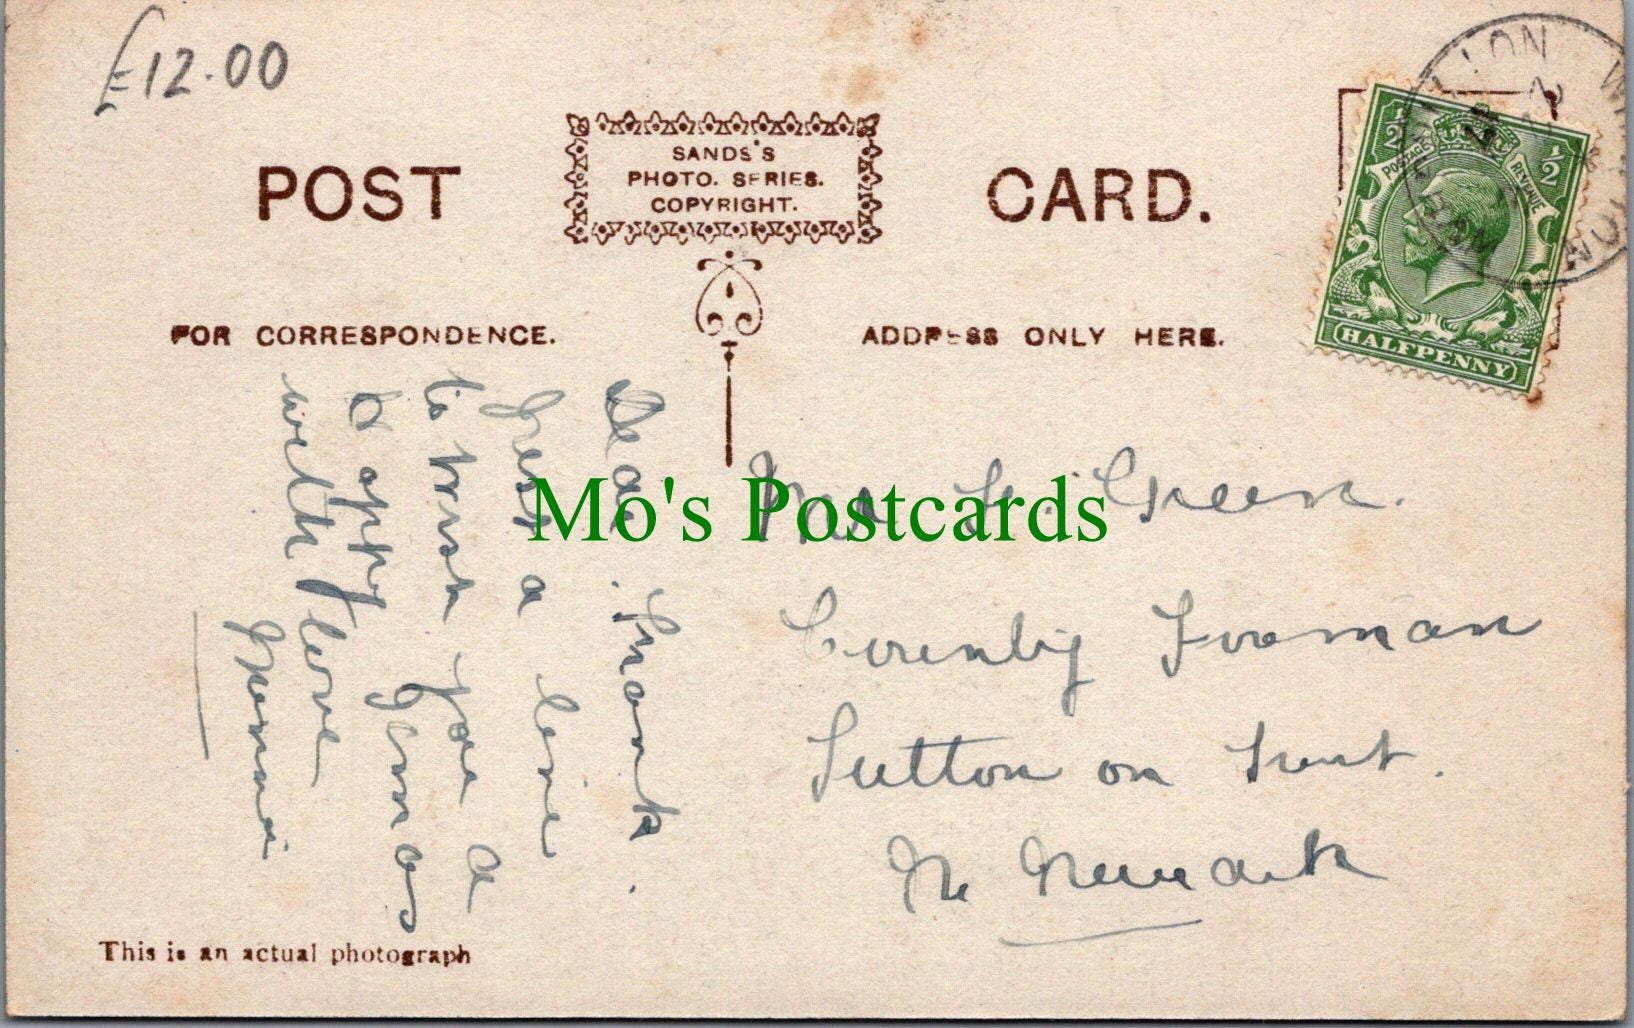 £12.00
POST CARD.
SANDS'S
PHOTO. SERIES.
COPYRIGHT.
½ ½
POSTAGE REVENUE
HALFPENNY
FOR CORRESPONDENCE.
ADDRESS ONLY HERE.
Dear Frank.
Just a line
to wish you a
Happy Xmas
with love
Mo's Postcards
Green.
Foreman
Sutton on Trent.
Nr Newark
This is an actual photograph